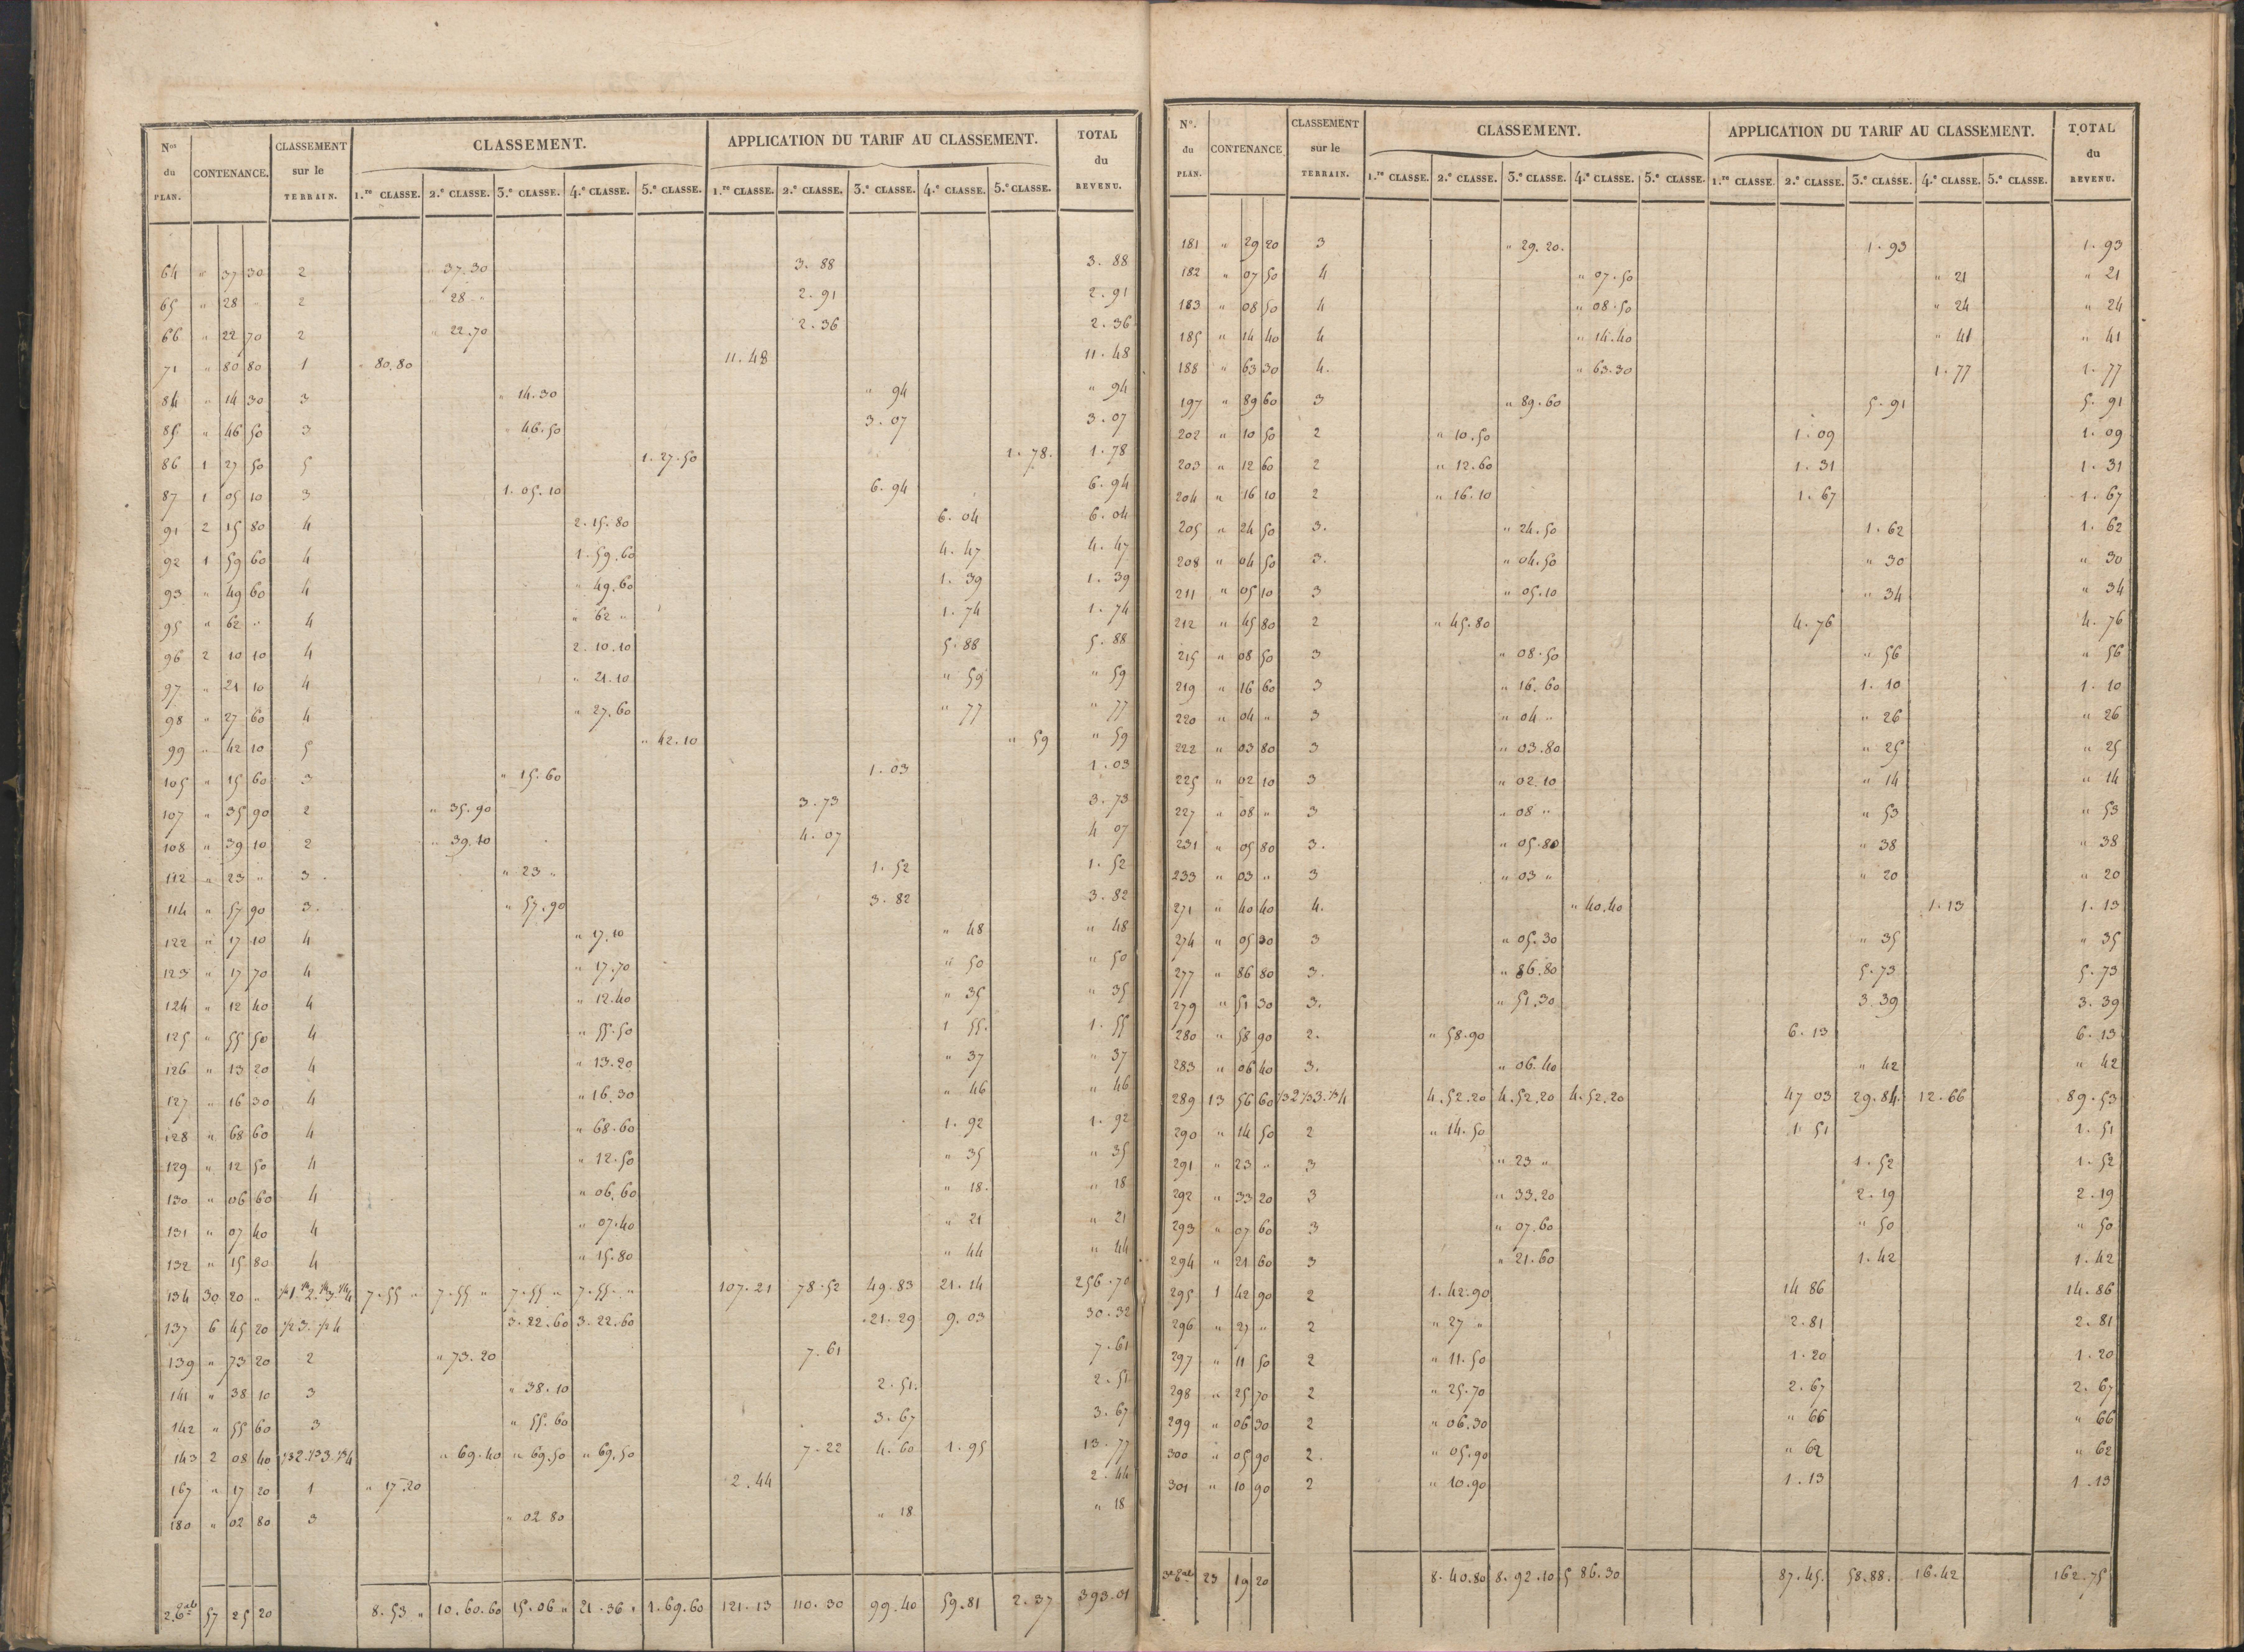 Nos du PLAN. CONTENANCE. CLASSEMENT sur le TERRAIN. CLASSEMENT. APPLICATION DU TARIF AU CLASSEMENT. TOTAL du REVENU.
1.re CLASSE. 2.e CLASSE. 3.e CLASSE. 4.e CLASSE. 5.e CLASSE. 1.re CLASSE. 2.e CLASSE. 3.e CLASSE. 4.e CLASSE. 5.e CLASSE.
64 " 37 30 2 " 37.30 3. 88 3. 88
65 " 28 " 2 " 28 " 2. 91 2. 91
66 " 22 70 2 " 22.70 2. 36 2. 36
71 " 80 80 1 " 80.80 11. 48 11. 48
84 " 14 30 3 " 14.30 " 94 " 94
85 " 46 50 3 " 46.50 3. 07 3. 07
86 1 27 50 5 1. 27. 50 1. 78. 1. 78
87 1 05 10 3 1. 05. 10 6. 94 6. 94
91 2 15 80 4 2. 15. 80 6. 04 6. 04
92 1 59 60 4 1. 59. 60 4. 47 4. 47
93 " 49 60 4 " 49.60 1. 39 1. 39
95 " 62 " 4 " 62 " 1. 74 1. 74
96 2 10 10 4 2. 10. 10 5. 88 5. 88
97 " 21 10 4 " 21.10 " 59 " 59
98 " 27 60 4 " 27.60 " 77 " 77
99 " 42 10 5 " 42.10 " 59 " 59
105 " 15 60 3 " 15.60 1. 03 1. 03
107 " 35 90 2 " 35.90 3. 73 3. 73
108 " 39 10 2 " 39.10 4. 07 4 07
112 " 23 " 3. " 23 " 1. 52 1. 52
114 " 57 90 3. " 57.90 3. 82 3. 82
122 " 17 10 4 " 17.10 " 48 " 48
123 " 17 70 4 " 17.70 " 50 " 50
124 " 12 40 4 " 12.40 " 35 " 35
125 " 55 50 4 " 55.50 1 55. 1. 55
126 " 13 20 4 " 13.20 " 37 " 37
127 " 16 30 4 " 16.30 " 46 " 46
128 " 68 60 4 " 68.60 1. 92 1. 92
129 " 12 50 4 " 12.50 " 35 " 35
130 " 06 60 4 " 06.60 " 18. " 18
131 " 07 40 4 " 07.40 " 21 " 21
132 " 15 80 4 " 15.80 " 44 " 44
134 30 20 " 1/4 1. 1/4 2. 1/4 3. 1/4 4 7. 55 " 7. 55 " 7. 55 " 7. 55. " 107. 21 78. 52 49. 83 21. 14 256. 70
137 6 45 20 1/2 3. 1/2 4 3. 22. 60 3. 22. 60 21. 29 9. 03 30. 32
139 " 73 20 2 " 73. 20 7. 61 7. 61
141 " 38 10 3 " 38. 10 2. 51. 2. 51
142 " 55 60 3 " 55. 60 3. 67 3. 67
143 2 08 40 1/3 2. 1/3 3. 1/3 4 " 69. 40 " 69. 50 " 69. 50 7. 22 4. 60 1. 95 13. 77
167 " 17 20 1 " 17. 20 2. 44 2. 44
180 " 02 80 3 " 02 80 " 18 " 18
57 25 20 8. 53 " 10. 60. 60 15. 06 " 21. 36 " 1. 69. 60 121. 13 110. 30 99. 40 59. 81 2. 37 393. 01
No. du PLAN. CONTENANCE CLASSEMENT sur le TERRAIN. CLASSEMENT. APPLICATION DU TARIF AU CLASSEMENT. TOTAL du REVENU.
1.re CLASSE. 2.e CLASSE. 3.e CLASSE. 4.e CLASSE. 5.e CLASSE. 1.re CLASSE. 2.e CLASSE. 3.e CLASSE. 4.e CLASSE. 5.e CLASSE.
181 " 29 20 3 " 29. 20. 1. 93 1. 93
182 " 07 50 4 " 07. 50 " 21 " 21
183 " 08 50 4 " 08. 50 " 24 " 24
185 " 14 40 4 " 14. 40 " 41 " 41
188 " 63 30 4. " 63. 30 1. 77 1. 77
197 " 89 60 3 " 89. 60 5. 91 5. 91
202 " 10 50 2 " 10. 50 1. 09 1. 09
203 " 12 60 2 " 12. 60 1. 31 1. 31
204 " 16 10 2 " 16. 10 1. 67 1. 67
205 " 24 50 3. " 24. 50 1. 62 1. 62
208 " 04 50 3. " 04. 50 " 30 " 30
211 " 05 10 3 " 05. 10 " 34 " 34
212 " 45 80 2 " 45. 80 4. 76 4. 76
215 " 08 50 3 " 08. 50 " 56 " 56
219 " 16 60 3 " 16. 60 1. 10 1. 10
220 " 04 " 3 " 04 " " 26 " 26
222 " 03 80 3 " 03. 80 " 25 " 25
225 " 02 10 3 " 02. 10 " 14 " 14
227 " 08 " 3 " 08 " " 53 " 53
231 " 05 80 3. " 05. 80 " 38 " 38
233 " 03 " 3 " 03 " " 20 " 20
271 " 40 40 4. " 40. 40 1. 13 1. 13
274 " 05 30 3 " 05. 30 " 35 " 35
277 " 86 80 3. " 86. 80 5. 73 5. 73
279 " 51 30 3. " 51. 30 3. 39 3. 39
280 " 58 90 2. " 58. 90 6. 13 6. 13
283 " 06 40 3. " 06. 40 " 42 " 42
289 13 56 60 1/3 2 1/3 3. 1/3 4 4. 52. 20 4. 52. 20 4. 52. 20 47 03 29. 84. 12. 66 89. 53
290 " 14 50 2 " 14. 50 1. 51 1. 51
291 " 23 " 3 " 23 " 1. 52 1. 52
292 " 33 20 3 " 33. 20 2. 19 2. 19
293 " 07 60 3 " 07. 60 " 50 " 50
294 " 21 60 3 " 21. 60 1. 42 1. 42
295 1 42 90 2 1. 42. 90 14 86 14. 86
296 " 27 " 2 " 27 " 2. 81 2. 81
297 " 11 50 2 " 11. 50 1. 20 1. 20
298 " 25 70 2 " 25. 70 2. 67 2. 67
299 " 06 30 2 " 06. 30 " 66 " 66
300 " 05 90 2. " 05. 90 " 62 " 62
301 " 10 90 2 " 10. 90 1. 13 1. 13
23 19 20 8. 40. 80 8. 92. 10 5 86. 30 87. 45. 58. 88. 16. 42 162. 75